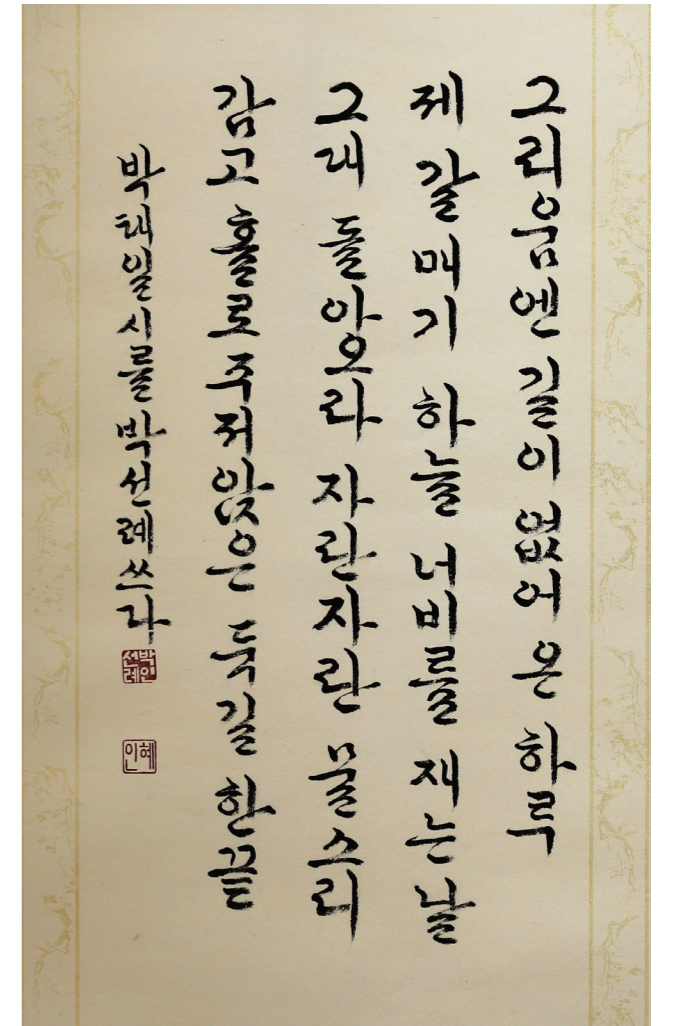 그리움엔 길이 없어 온 하루
제 갈매기 하늘 너비를 재는 날
그대 돌아오라 자란자란 물소리
감고 홀로 주저앉은 둑길 한끝
박태일 시를 박선례 쓰다
박선례인
혜인